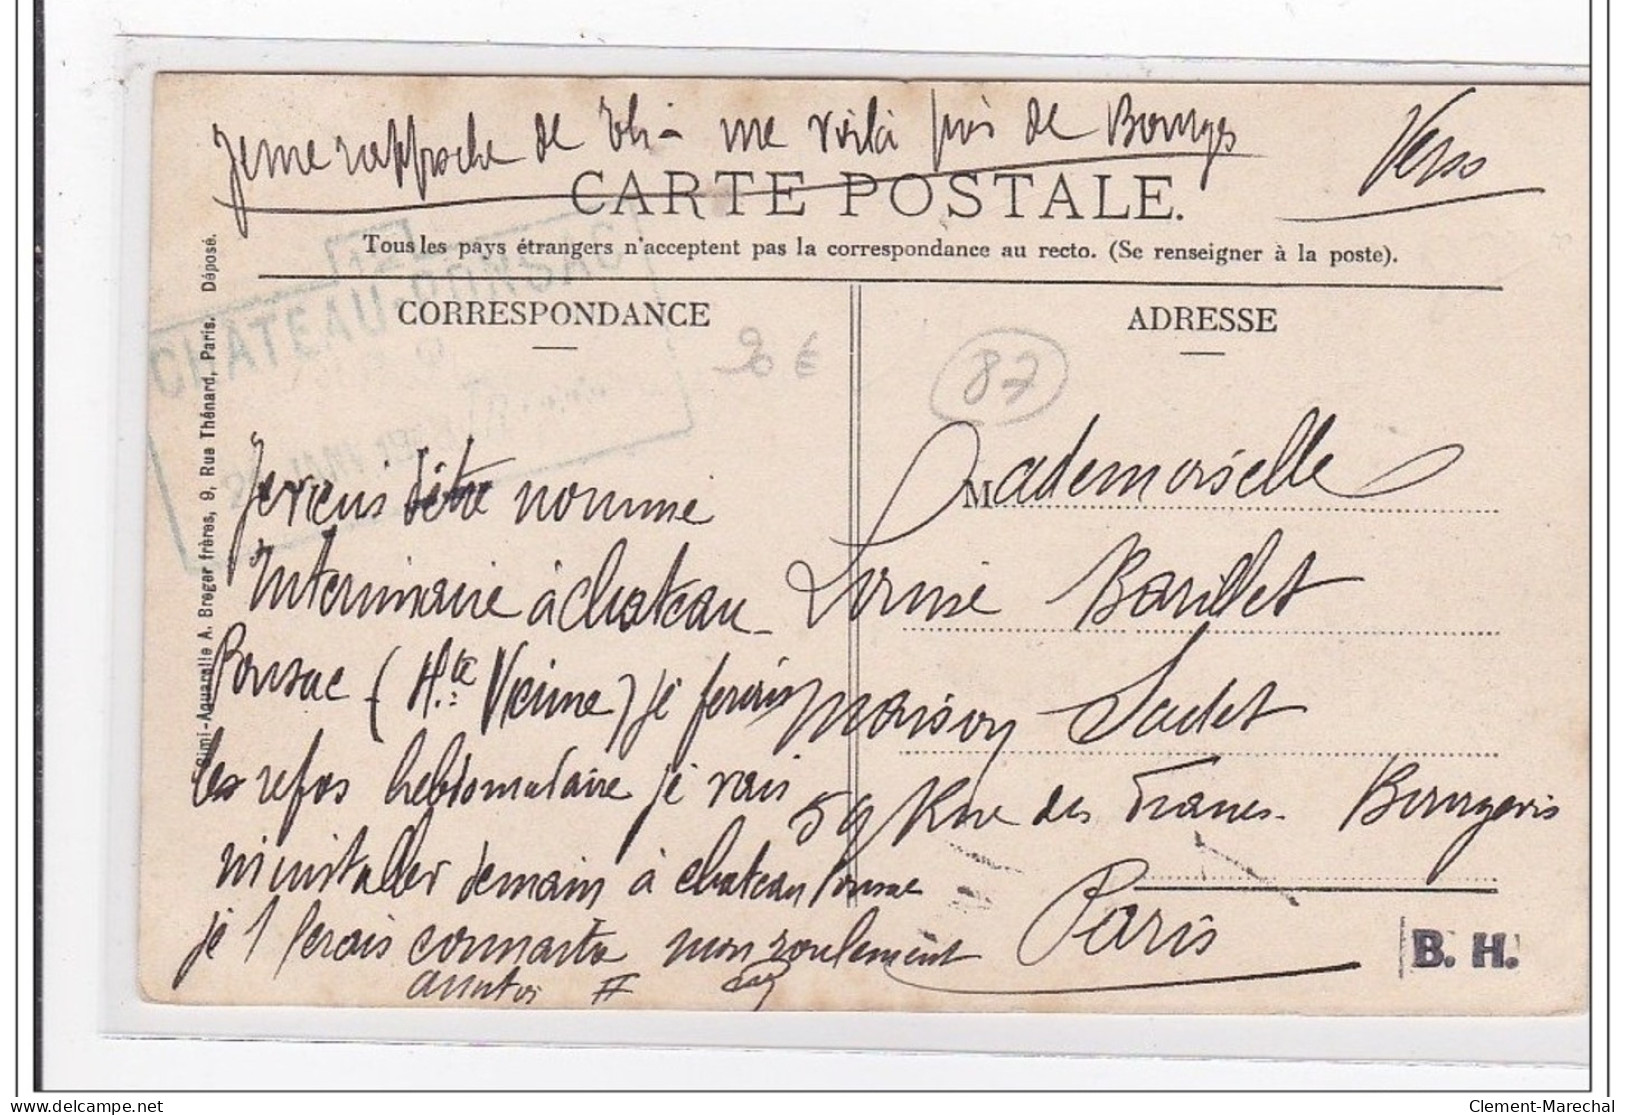 Je me rapproche de me voilà près de Bourges Verso
CARTE POSTALE.
Tous les pays étrangers n'acceptent pas la correspondance au recto. (Se renseigner à la poste).
CORRESPONDANCE
ADRESSE
CHATEAU-PONSAC
20 €
87
Simi-Aquarelle A. Breger frères, 9, Rue Thénard, Paris. Déposé.
Je viens d'être nommé
Interimaire à chateau
Ponsac (Hte Vienne) je ferais
les repos hebdomadaire je vais
m'installer demain à chateau Ponsac
je ferais connaitre mon roulement
Mademoiselle
Louise Barillet
Maison Sudet
59 Rue des Francs-Bourgeois
Paris
B. H.
delcampe.net
Clement-Marechal